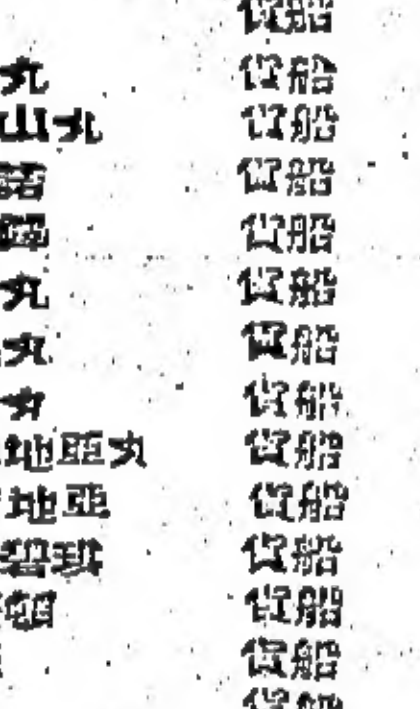 貨船
丸 貨船
山丸 貨船
諾 貨船
貨船
丸 貨船
丸 貨船
貨船
地亞丸 貨船
地亞 貨船
碧琪 貨船
頓 貨船
貨船
貨船